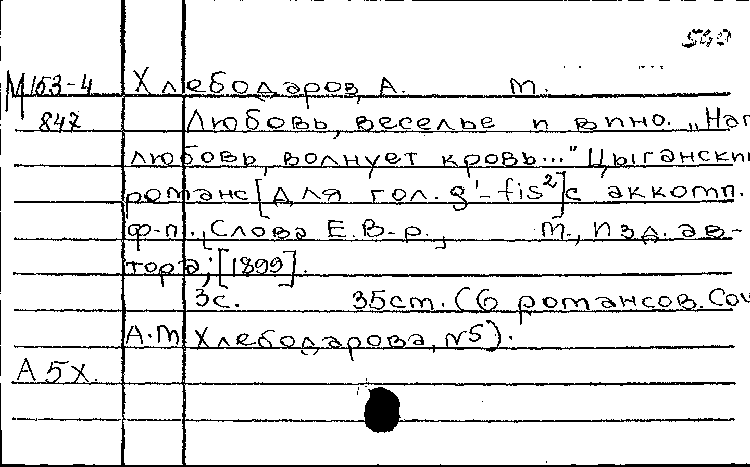 549
М 163-4 Хлебодаров, А. М.
847 Любовь, веселье и вино. „Наг
любовь, волнует кровь..." Цыгански
романс [для гол. g'-fis²] с аккомп.
ф-п., Слова Е.В-р., М., изд. ав-
тора, [1899].
3с. 35см. (6 романсов. Соч
А.М Хлебодарова, №5).
А5х.